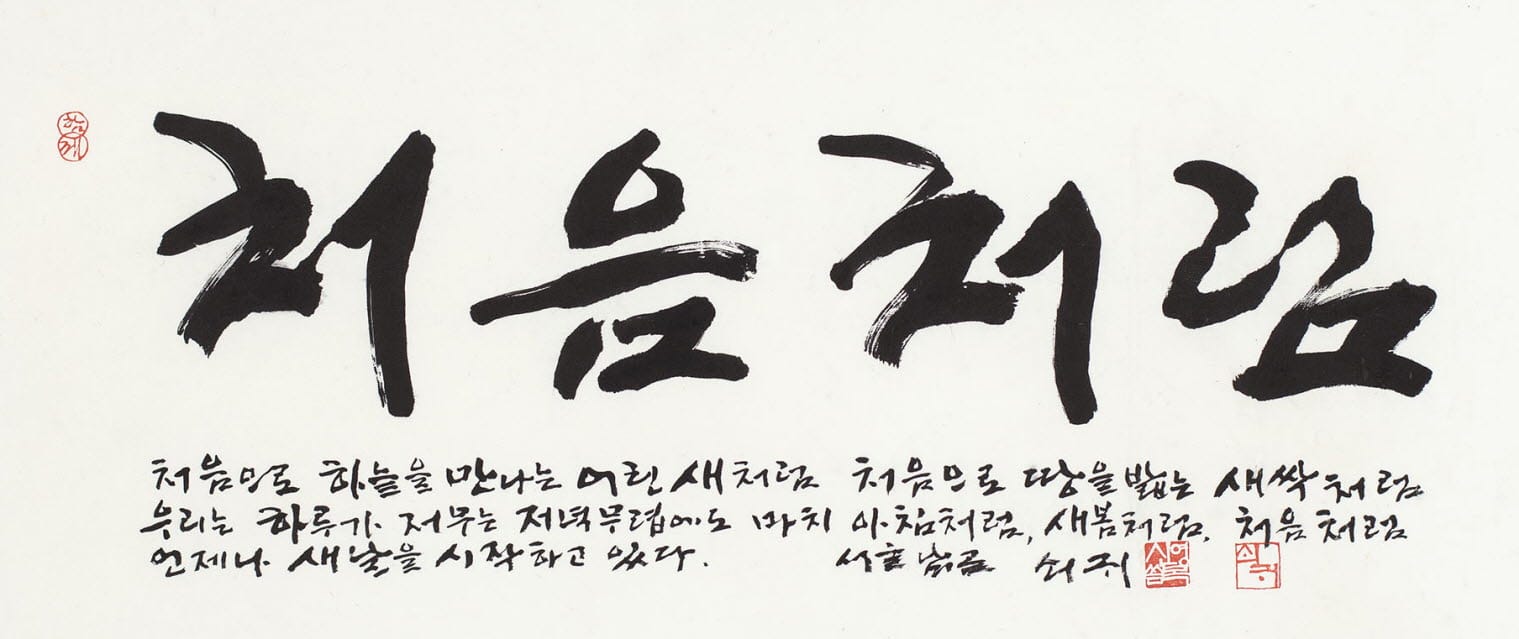 함께
처음처럼
처음으로 하늘을 만나는 어린 새처럼 처음으로 땅을 밟는 새싹처럼
우리는 하루가 저무는 저녁무렵에도 마치 아침처럼, 새봄처럼, 처음처럼
언제나 새날을 시작하고 있다. 쇠귀